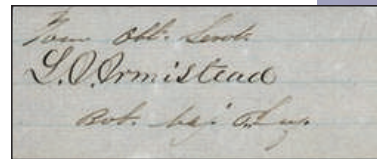 Your Obt. Servt.
L. A. Armistead
Bvt. Maj. U.S.A.